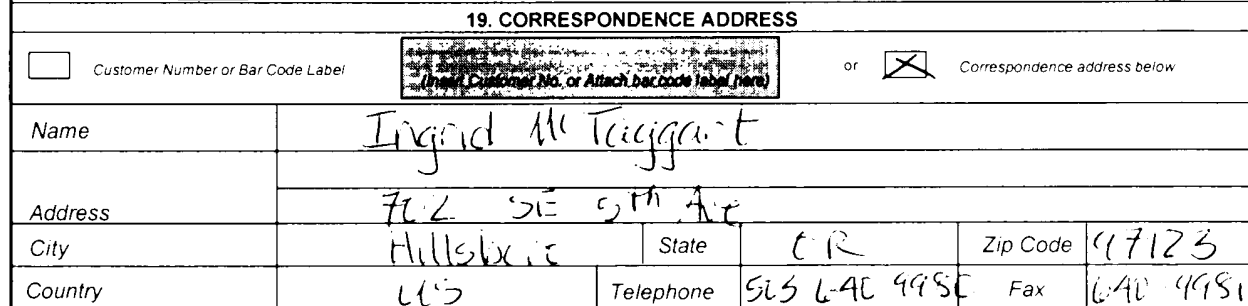 19. CORRESPONDENCE ADDRESS
Customer Number or Bar Code Label (Insert Customer No. or Attach bar code label here) or Correspondence address below
Name Ingrid McTaggart
Address 702 SE 5th Ave
City Hillsboro State OR Zip Code 97123
Country US Telephone 503 640 9980 Fax 640 9981